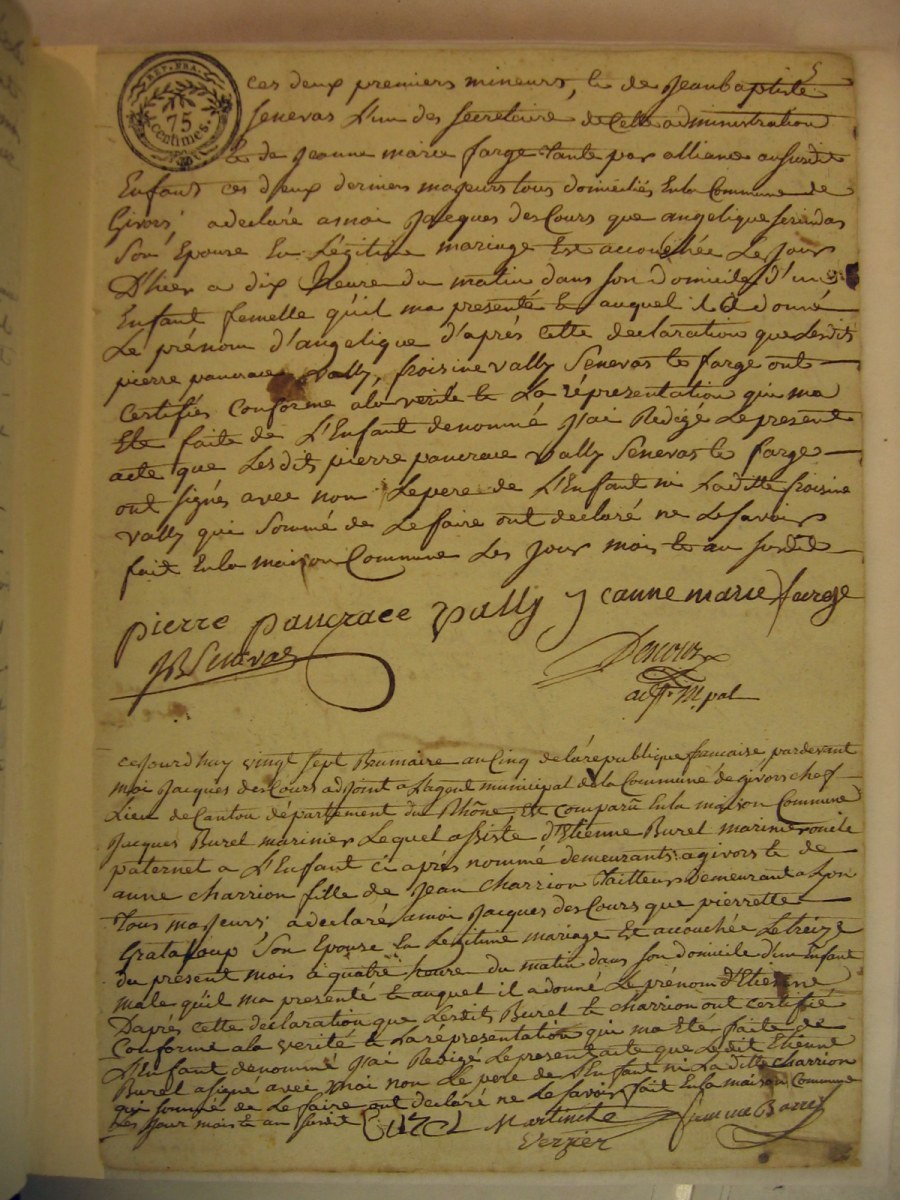 5
REP. FRA.
75
centimes.
ces deux premiers mineurs, & de Jean baptiste
Senevas L'un des secretaire de Cette administration
& de Jeanne marie farge tante par alliance au susdit
Enfant ces deux derniers majeurs tous domiciliés En la Commune de
Givors, a declaré a moi Jacques des Cours que angelique
Son Epouse En Légitime mariage Est accouchée Le jour
D'hier a dix heure du matin dans son domicile d'un
Enfant femelle qu'il ma presenté & auquel il a donné
Le prénom d'angelique d'après cette declaration que Lesdits
pierre pancrace vally, froisine vally Senevas & farge ont
Certifiés Conforme a la verité & La réprésentation qui ma
Eté faite de L'Enfant denommé J'ai Redigé Le present
acte que Lesdits pierre pancrace vally Senevas & farge
ont signés avec non Le pere de L'Enfant ni Laditte froisine
vally qui sommé de Le faire ont declaré ne Le savoir
fait En la maison Commune Les jour mois & an susdit
pierre pancrace vally Jeanne marie farge
JB Senevas Descours
adjt. M.pal
cejourd'huy vingt sept Brumaire an Cinq de la république francaise, pardevant
moi Jacques des Cours adjoint a L'agent municipal de la Commune de givors chef
Lieu de Canton département du Rhône, Est comparû En la maison Commune
Jacques Burel marinier Lequel assisté d'Etienne Burel marinier oncle
paternel a L'Enfant ci après nommé demeurants a givors & de
anne charrion fille de Jean Charrion Tailleur demeurant a Lyon
tous majeurs, a declaré a moi Jacques des Cours que pierrette
Grataloup Son Epouse En Légitime mariage Est accouchée Le treize
du present mois a quatre heure du matin dans son domicile d'un Enfant
male qu'il ma presenté & auquel il a donné Le prénom d'Etienne
D'après cette declaration que Lesdits Burel & charrion ont certifié
Conforme a la verité & La réprésentation qui ma Eté faite de
L'Enfant denommé J'ai Redigé Le present acte que Ledit Etienne
Burel a signé avec moi non Le pere de L'Enfant ni Laditte charrion
qui sommé de Le faire ont declaré ne Le savoir fait En la maison Commune
Les jour mois & an susdit Martinite
Verzier